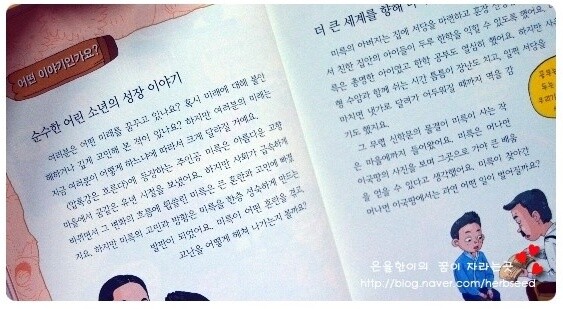 어떤 이야기인가요?
순수한 어린 소년의 성장 이야기
여러분은 어떤 미래를 꿈꾸고 있나요? 혹시 미래에 대해 불안
해하거나 깊게 고민해 본 적이 있나요? 하지만 여러분의 미래는
지금 여러분이 어떻게 하느냐에 따라서 크게 달라질 거예요.
《압록강은 흐른다》에 등장하는 주인공 미륵은 아름다운 고향
마을에서 꿈같은 유년 시절을 보냈어요. 하지만 사회가 급속하게
바뀌면서 그 변화의 흐름에 휩쓸린 미륵은 큰 혼란과 고민에 빠졌
지요. 하지만 미륵의 고민과 방황은 미륵을 한층 성숙하게 만드는
발판이 되었어요. 미륵이 어떤 혼란을 겪고,
고난을 어떻게 헤쳐 나가는지 볼까요?
더 큰 세계를 향해
미륵의 아버지는 집에 서당을 마련하고 훈장 선생
서 친한 집안의 아이들이 두루 한학을 익힐 수 있도록 했어요.
륵은 총명한 아이였고 한학 공부도 열심히 했어요. 하지만 사
형 수암과 함께 쉬는 시간 틈틈이 장난도 치고, 일찍 서당을
마치면 냇가로 달려가 어두워질 때까지 멱을 감
기도 했지요.
그 무렵 신학문의 물결이 미륵이 사는 작
은 마을에까지 들어왔어요. 미륵은 머나먼
이국땅의 사진을 보며 그곳으로 가야 큰 배움
을 얻을 수 있다고 생각했어요. 미륵이 찾아간
머나먼 이국땅에서는 과연 어떤 일이 벌어질까요?
은율한이의 꿈이 자라는곳
http://blog.naver.com/herbseed